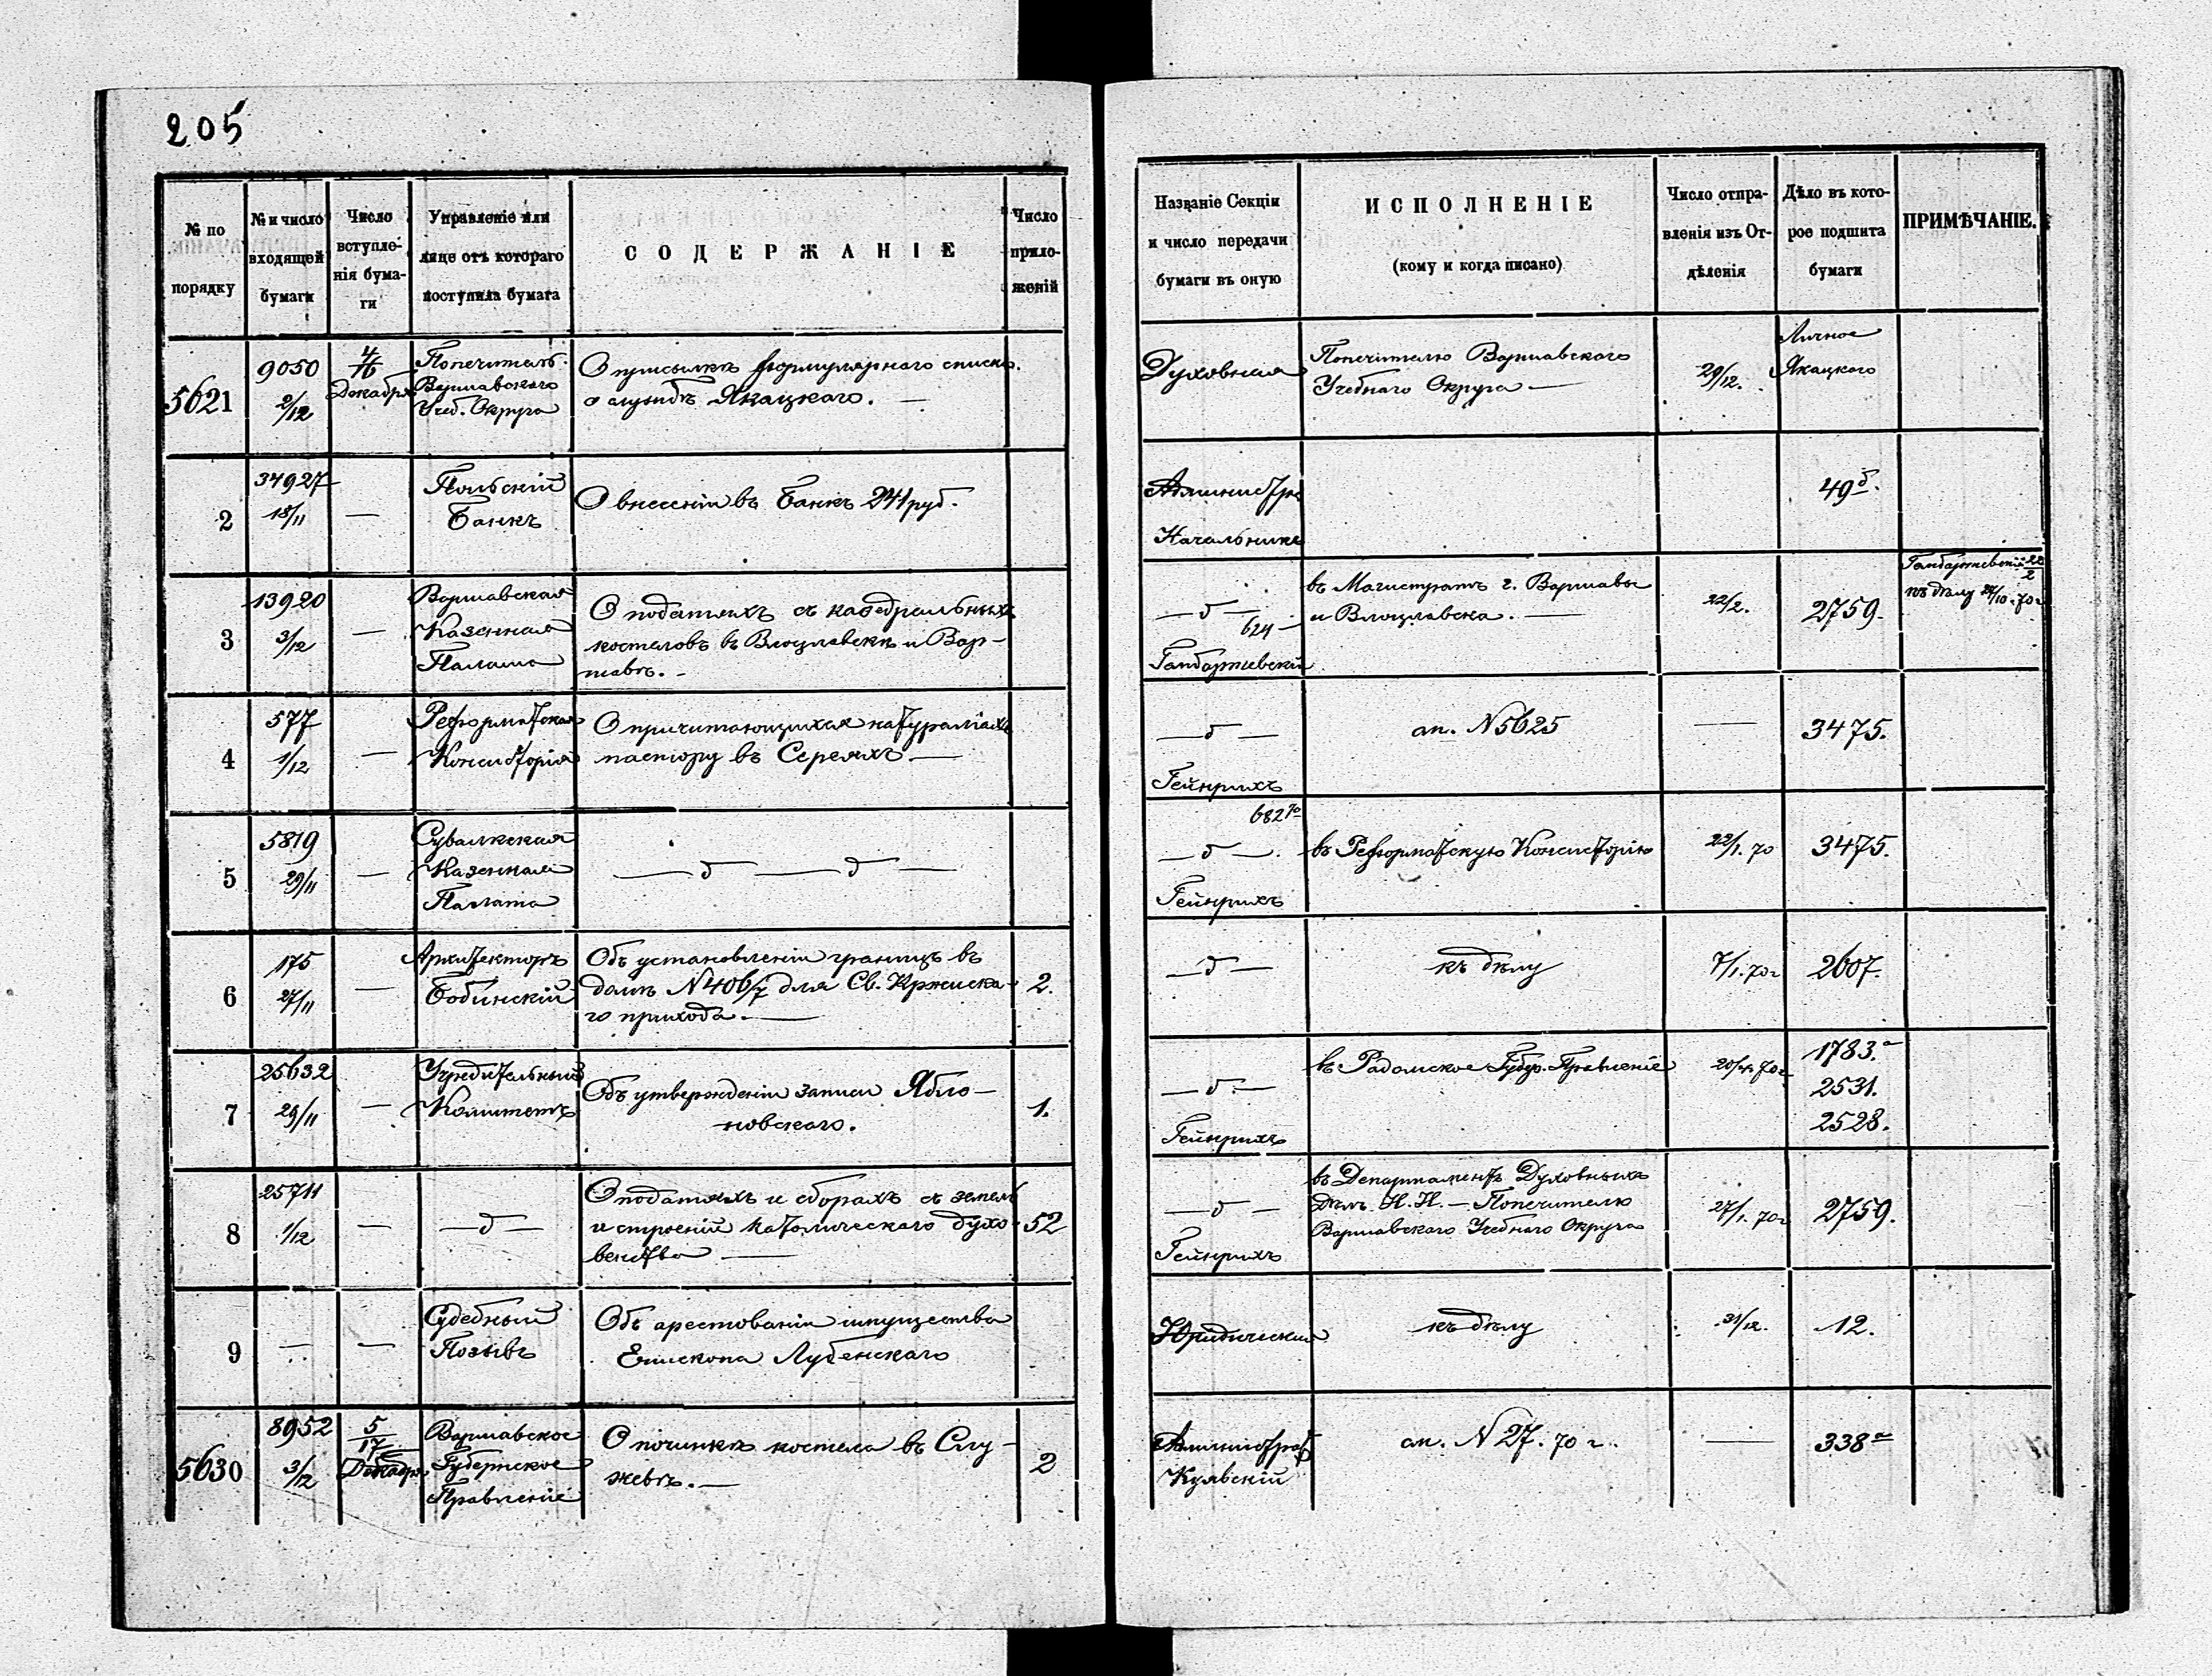 205
№ по порядку
№ и число входящей бумаги
Число вступленія бумаги
Управленіе или лице отъ котораго поступила бумага
СОДЕРЖАНІЕ
Число приложеній
Названіе Секціи и число передачи бумаги въ оную
ИСПОЛНЕНІЕ
(кому и когда писано)
Число отправленія изъ Отдѣленія
Дѣло въ которое подшита бумаги
ПРИМѢЧАНІЕ.
5621
9050
2/12
4/16
Декабря
Попечитель
Варшавскаго
Учеб. Округа
О присылкѣ формулярнаго списка
о службѣ Якацкаго. —
Духовная
Попечителю Варшавскаго
Учебнаго Округа —
29/12.
Личное
Якацкаго
2
34927
18/11
—
Польскій
Банкъ
О внесеніи въ Банкъ 241 руб.
Начальнике
49 б.
3
13920
3/12
—
Варшавская
Казенная
Палата
О податяхъ съ каѳедральныхъ
костеловъ въ Влоцлавскѣ и Вар-
шавѣ. -
— д —
624 —
въ Магистратъ г. Варшавы
и Влоцлавска. —
22/2.
2759.
къ дѣлу 24/10. 70 г
4
577
1/12
—
Реформатская
Консисторія
О причитающихся натураліахъ
пастору въ Сереяхъ —
— д —
Гейнрихъ
ст. N 5625
—
3475.
5
5819
29/11
—
Сувалкская
Казенная
Палата
— д — д —
682 70
— д —.
Гейнрихъ
въ Реформатскую Консисторію
22/1. 70
3475.
6
175
27/11
—
Архитекторъ
Бобинскій
Объ установленіи границъ въ
домѣ N 406/7 для Св. Кржиска-
го прихода. —
2.
— д —
къ дѣлу
7/1. 70 г
2607.
7
25632
29/11
—
Учредительный
Комитетъ
Объ утвержденіи записи Ябло-
новскаго.
1.
— д —
Гейнрихъ
въ Радомское Губер. Правленіе
20/4. 70 г
1783. а
2531.
2528.
8
25711
1/12
—
— д —
О податяхъ и сборахъ съ земель
и строеній католическаго духо-
венства —
52
— д —
Гейнрихъ
въ Департаментъ Духовныхъ
Дѣлъ И. И. — Попечителю
Варшавскаго Учебнаго Округа
27/1. 70 г
2759.
9
—
—
Судебный
Позывъ
Объ арестованіи имущества
Епископа Лубенскаго
Юридическая
къ дѣлу
31/12.
12.
5630
8952
3/12
5/17
Декабря
Варшавское
Губернское
Правленіе
О починкѣ костела въ Слу-
жевѣ. —
2
Куявскій
ст. N 27. 70 г.
—
338 а